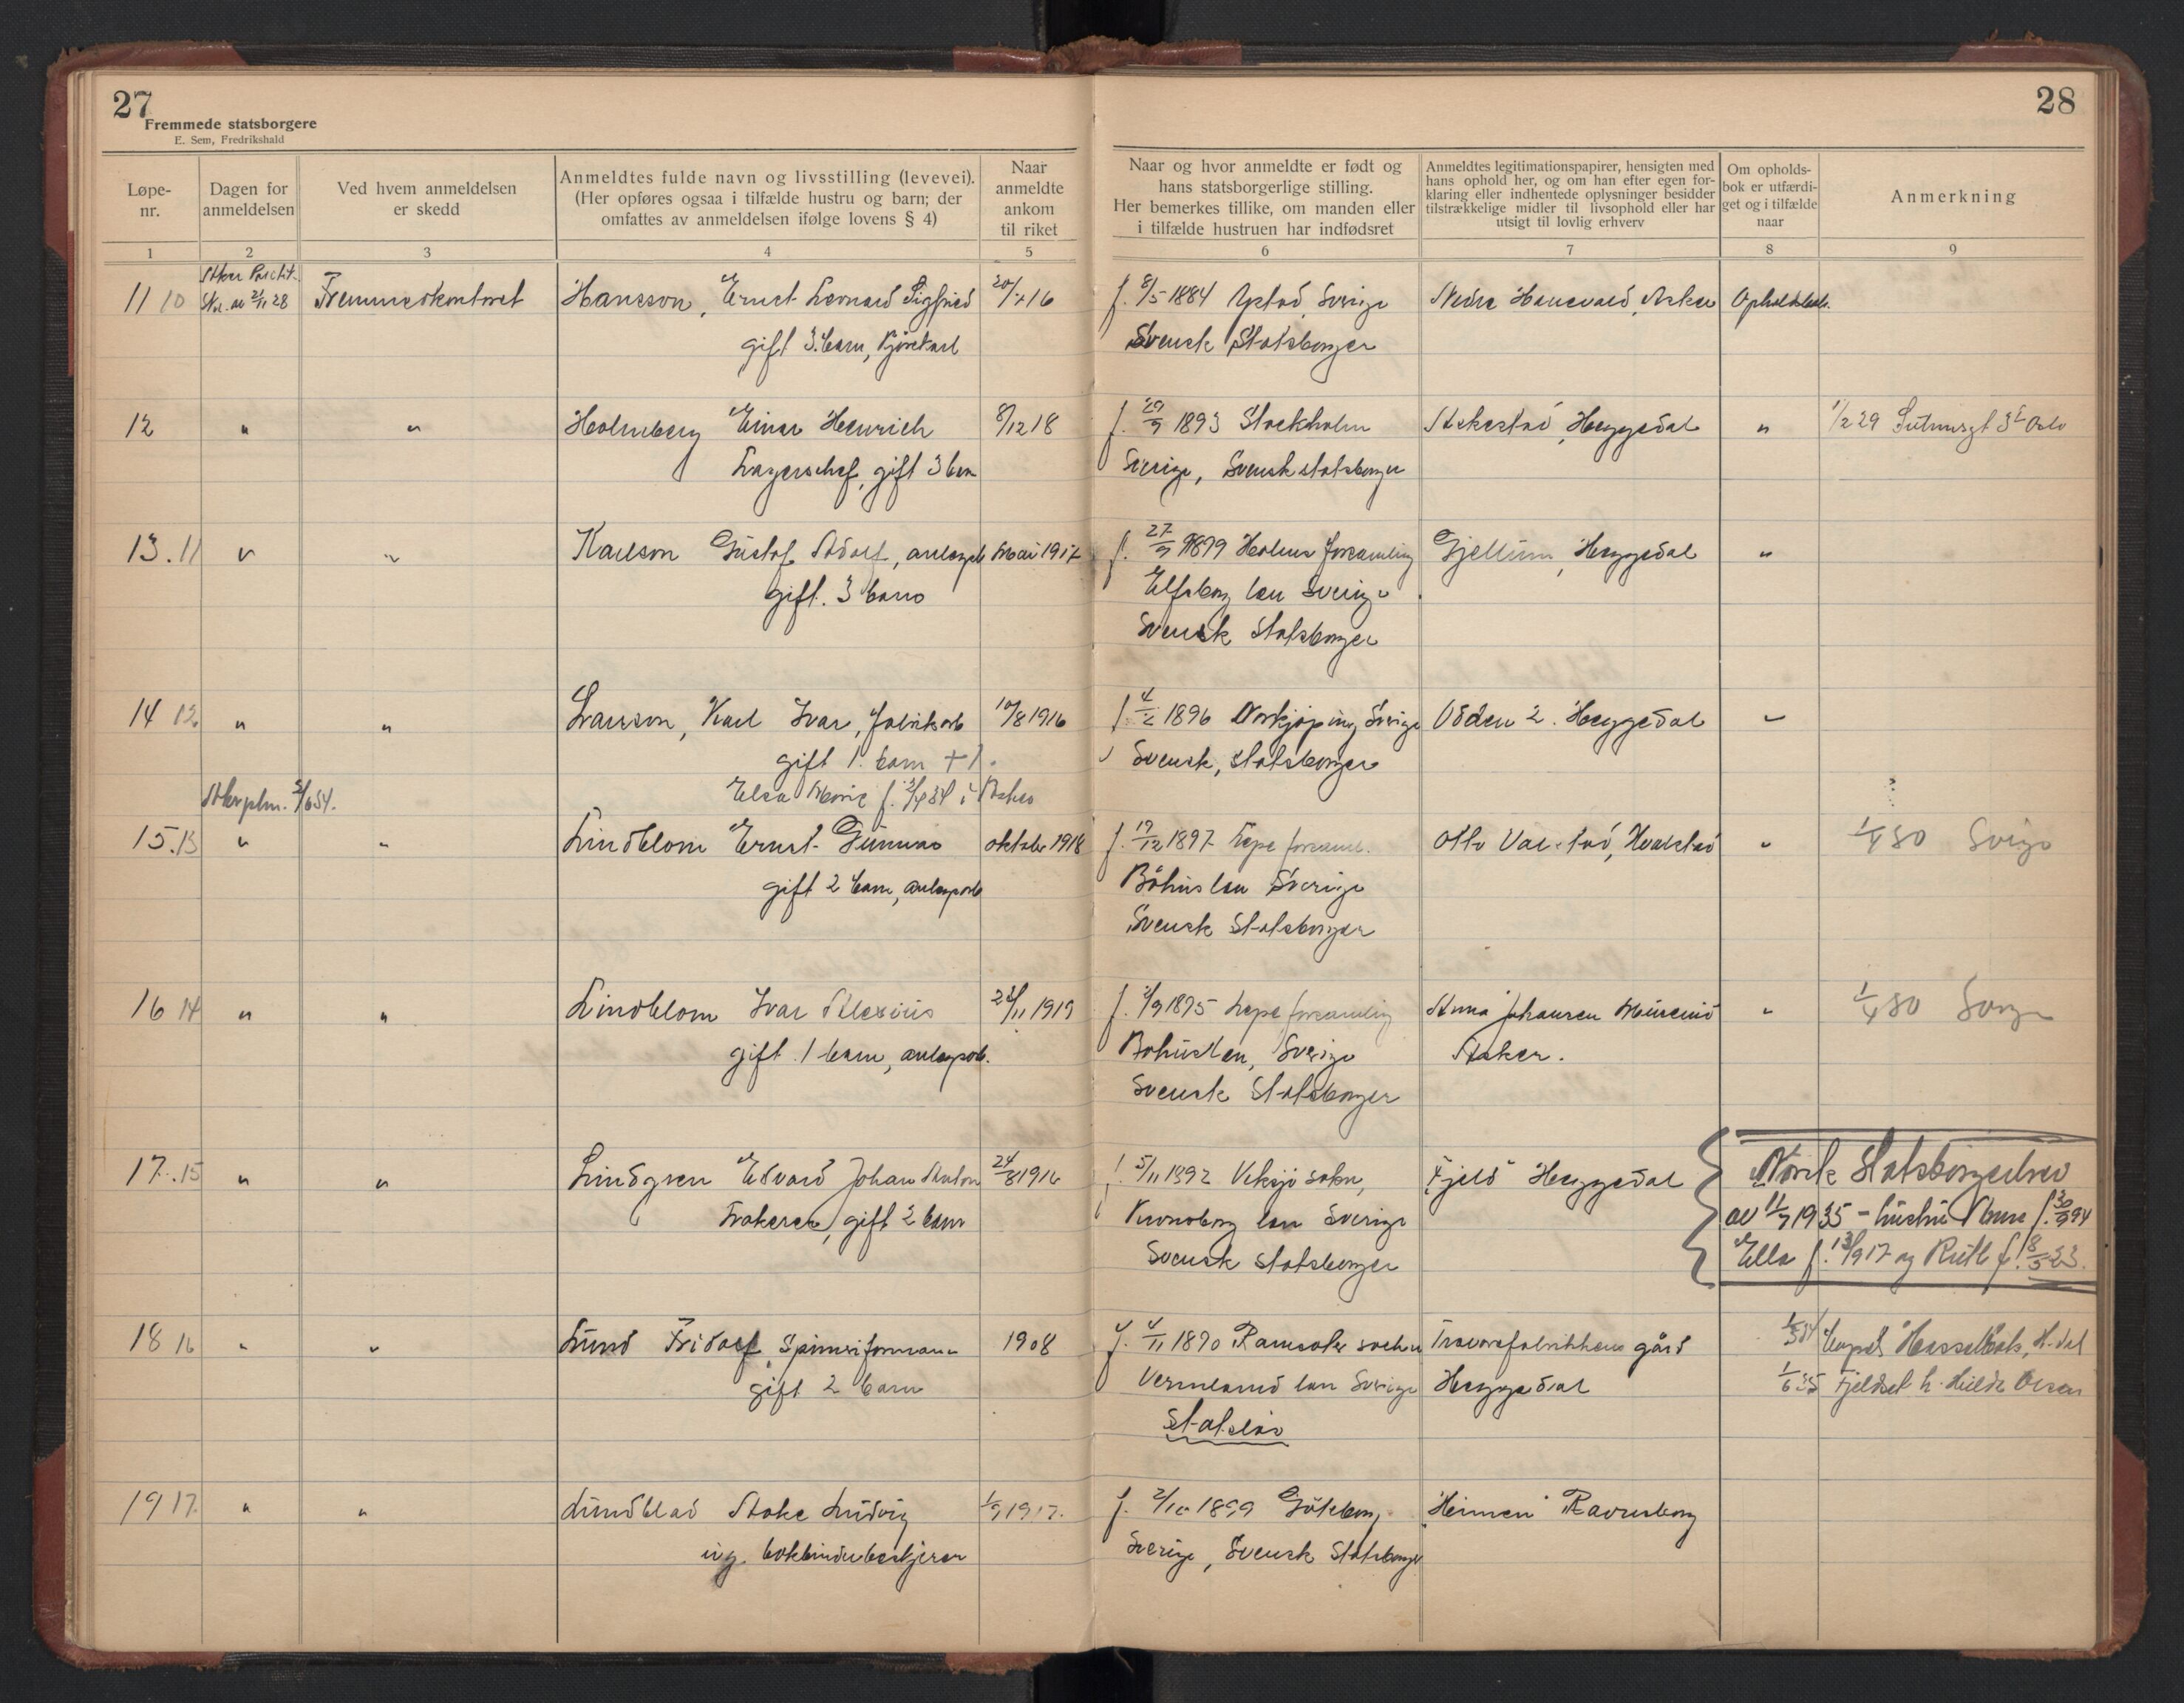 27
Fremmede statsborgere
E. Sem, Fredrikshald
28
Løpe-nr.
Dagen for anmeldelsen
Ved hvem anmeldelsen er skedd
Anmeldtes fulde navn og livsstilling (levevei).
(Her opføres ogsaa i tilfælde hustru og barn; der
omfattes av anmeldelsen ifølge lovens § 4)
Naar anmeldte ankom til riket
Naar og hvor anmeldte er født og
hans statsborgerlige stilling.
Her bemerkes tillike, om manden eller
i tilfælde hustruen har indfødsret
Anmeldtes legitimationspapirer, hensigten med
hans ophold her, og om han efter egen for-
klaring eller indhentede oplysninger besidder
tilstrækkelige midler til livsophold eller har
utsigt til lovlig erhverv
Om opholds-
bok er utfærdi-
get og i tilfælde
naar
Anmerkning
1 2 3 4 5 6 7 8 9
11 10 21/11 28 Fremmedkontoret Hansson, Ernst Leonard Sigfried 20/7 16 f. 8/5 1884 Ystad, Sverige Nedre Hanevold, Asker Opholdsbok.
gift 3 barn, Kjørekarl Svensk Statsborger
12 " " Holmberg Einar Heinrich 8/12 18 f. 29/9 1893 Stockholm Askestad, Heggedal " 1/2 29 Oslo
Lagerschef, gift 3 barn Sverige, Svensk statsborger
13. 11 " " Karlson Gustaf Adolf, anlegsarb Mai 1917 f. 27/9 1879 Holms forsamling Gjellum, Heggedal "
gift. 3 barn Elfsborg len Sverige
Svensk Statsborger
14 12 " " Larsson, Karl Ivar, fabrikarb 10/8 1916 f. 4/12 1896 Norkjøping, Sverige Oden 2. Heggedal "
gift 1. barn + 1. Svensk, statsborger
Elsa Marie f. i Asker
15. 13 " " Lindblom Ernst Gunnar oktober 1918 f. 19/12 1897 forsaml. Otto Valstad, Hvalstad " 1/4 30 Sverige
gift 2 barn, anlegsarb Bohuslen Sverige
Svensk Statsborger
16 14 " " Lindblom Ivar Alexius /11 1919 f. /9 1895 forsamling Anna Johansen " 1/4 30
gift. 1 barn, anlegsarb. Bohuslen, Sverige Asker.
Svensk Statsborger
17. 15 " " Lindgren Edvard Johan Anton 24/8 1916 f. 5/11 1892 Veksjø sokn, "Fjeld" Heggedal Norsk Statsborgerbrev
gift 2 barn Kronoberg len Sverige av 11/7 1935 - hustru Anna f. 30/9 94
Svensk statsborger Ella f. 13/9 17 og Ruth f. 18/5 23.
18 16 " " Lund Fridolf, Spinneriformann 1908 f. 4/11 1890 sochen Træværefabrikkens gård
gift 2 barn Vermland len Sverige Heggedal 1/6 35 Fjeldset h. Hilde Olsen
Statsløs
19 17. " " Lundblad Åke Ludvig 1/9 1917. f. 2/10 1899 Gøteborg "Heimen" Ravnsborg
Sverige, Svensk Statsborger